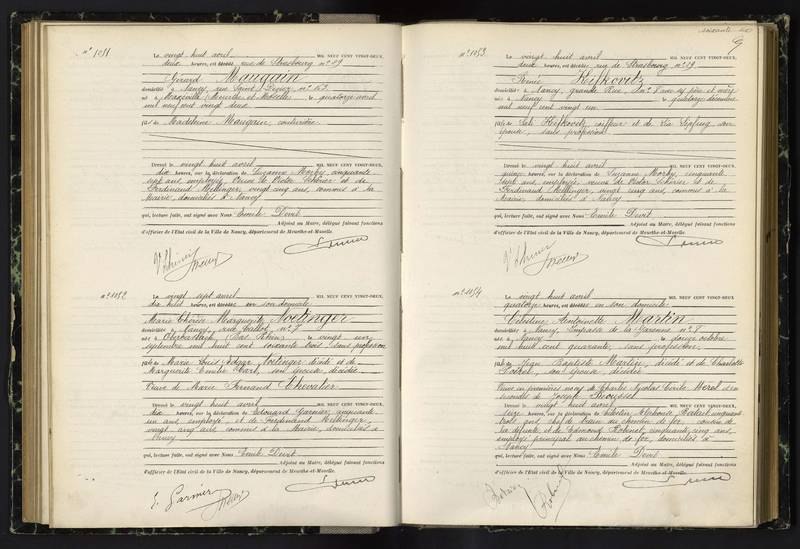 n° 1051
Le vingt huit avril MIL NEUF CENT VINGT-DEUX,
deux heures, est décédé rue de Strasbourg n° 29
Gérard Maugain
domicilié à Nancy, rue Saint Dizier n° 153
né à Maxéville (Meurthe et Moselle) le quatorze avril
mil neuf cent vingt deux
fils de Madeleine Maugain, couturière
Dressé le vingt huit avril MIL NEUF CENT VINGT-DEUX,
dix heures, sur la déclaration de Suzanne Morhy, cinquante
sept ans, employée, veuve de Victor Schirier et de
Ferdinand Mellinger, vingt cinq ans, commis à la
Mairie, domiciliés à Nancy
qui, lecture faite, ont signé avec Nous Emile Devit
Adjoint au Maire, délégué faisant fonctions
d'officier de l'Etat civil de la Ville de Nancy, département de Meurthe-et-Moselle.
n° 1052
Le vingt sept avril MIL NEUF CENT VINGT-DEUX,
dix huit heures, est décédée en son domicile
Marie Thérèse Marguerite Nottinger
domiciliée à Nancy, rue Callot n° 7
née à Oberhaslach (Bas Rhin) le vingt un
septembre mil huit cent soixante trois, sans profession
fille de Marie Louis Edgar Nottinger décédé et de
Marguerite Emilie Carl, son épouse décédée
Veuve de Marie Fernand Chevalier
Dressé le vingt huit avril MIL NEUF CENT VINGT-DEUX,
dix heures, sur la déclaration de Edouard Garnier, cinquante
un ans, employé et de Ferdinand Mellinger,
vingt cinq ans, commis à la Mairie, domiciliés à
Nancy
qui, lecture faite, ont signé avec Nous Emile Devit
Adjoint au Maire, délégué faisant fonctions
d'officier de l'Etat civil de la Ville de Nancy, département de Meurthe-et-Moselle.
E. Garnier
soixante
n° 1053
Le vingt huit avril MIL NEUF CENT VINGT-DEUX,
deux heures, est décédé rue de Strasbourg n° 29
Renée Heifkovitz
domiciliée à Nancy, grande Rue, avec ses père et mère
née à Nancy le quatorze décembre
mil neuf cent vingt un
fille de Heifkovitz, coiffeur et de son
épouse, sans profession
Dressé le vingt huit avril MIL NEUF CENT VINGT-DEUX,
quinze heures, sur la déclaration de Suzanne Morhy, cinquante
sept ans, employée, veuve de Victor Schirier et de
Ferdinand Mellinger, vingt cinq ans, commis à la
Mairie, domiciliés à Nancy
qui, lecture faite, ont signé avec Nous Emile Devit
Adjoint au Maire, délégué faisant fonctions
d'officier de l'Etat civil de la Ville de Nancy, département de Meurthe-et-Moselle.
n° 1054
Le vingt huit avril MIL NEUF CENT VINGT-DEUX,
quatorze heures, est décédée en son domicile
Célestine Antoinette Martin
domiciliée à Nancy, Impasse de la Garenne n° 8
née à Nancy le douze octobre
mil huit cent quarante, sans profession
fille de Jean Baptiste Martin, décédé et de Charlotte
son épouse, décédée
Veuve en premières noces de Charles Nicolas Cécile Morel et en
secondes de Joseph Broussel
Dressé le vingt huit avril MIL NEUF CENT VINGT-DEUX,
seize heures, sur la déclaration de Célestin Alphonse cinquante
trois ans, chef de train au chemin de fer, cousin de
la défunte et de Edmond Robinet, cinquante cinq ans,
employé principal au chemin de fer, domiciliés à
Nancy
qui, lecture faite, ont signé avec Nous Emile Devit
Adjoint au Maire, délégué faisant fonctions
d'officier de l'Etat civil de la Ville de Nancy, département de Meurthe-et-Moselle.